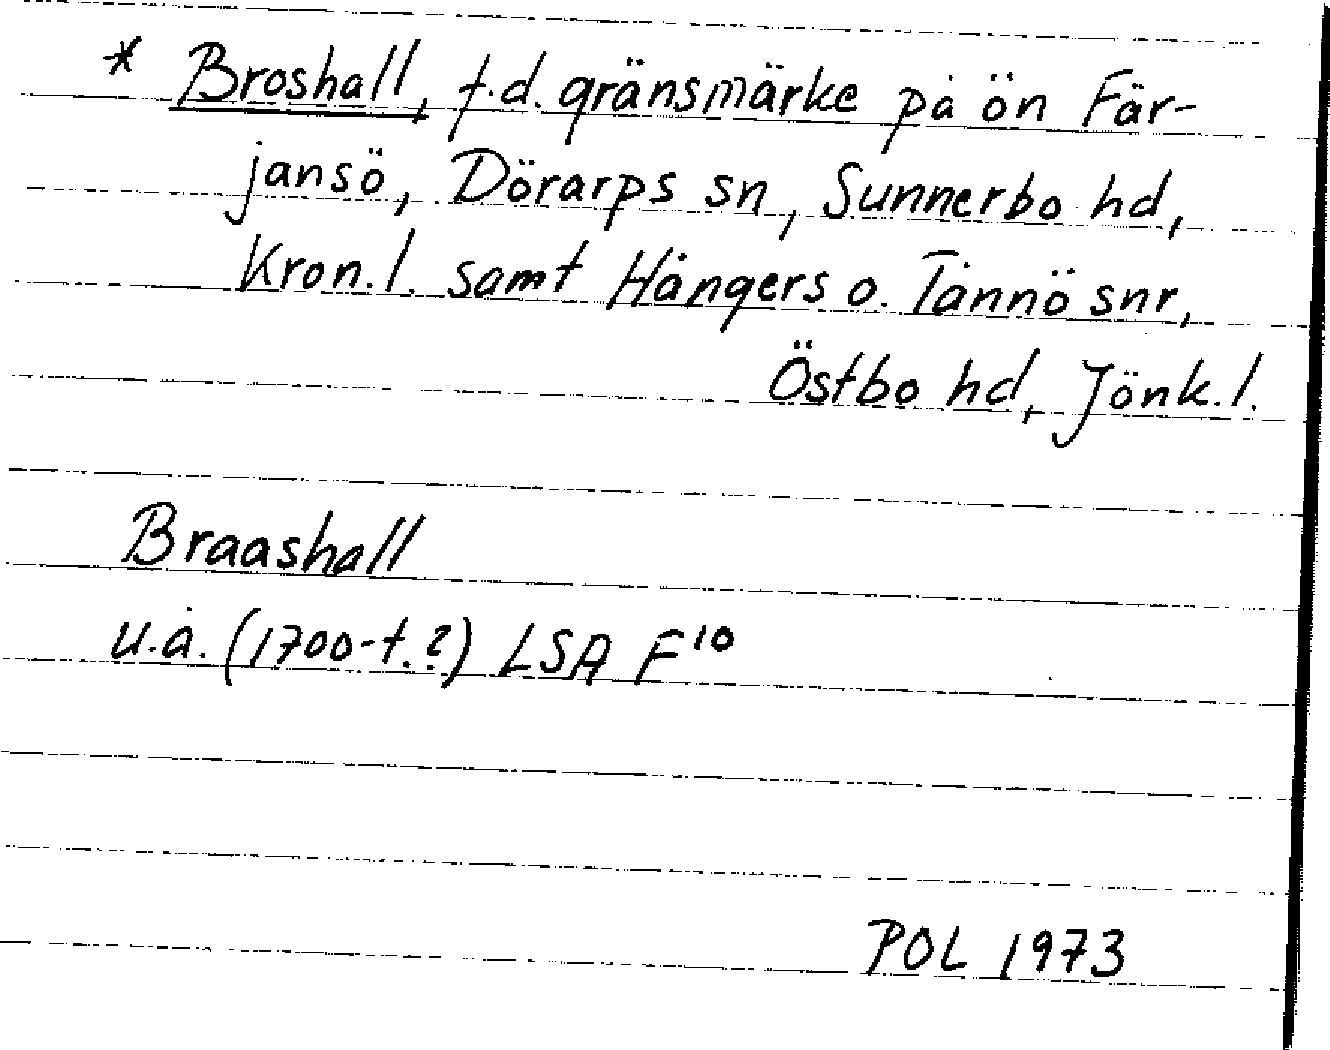 * Broshall, f.d. gränsmärke på ön Fär-
jansö, Dörarps sn, Sunnerbo hd,
Kron.l. samt Hångers o. Tånnö snr,
Östbo hd, Jönk.l.
Braashall
u.å. (1700-t.?) LSA F¹⁰
POL 1973